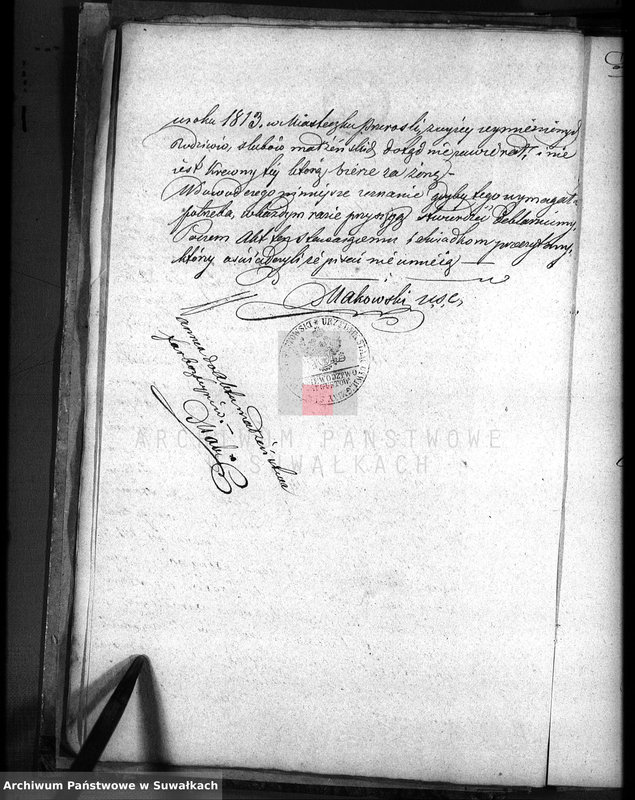 w roku 1813. w Miasteczku Przerośli, z wyżej wymienionych
Rodziców, ślubów małżeńskich dotąd nie zawierał, i nie
jest Krewny tej którą bierze za żonę,
W dowód czego niniejsze zeznanie gdyby tego wymagała
potrzeba, w każdym razie przysięgą stwierdzić deklarujemy,
Poczem Akt ten stawającemu i świadkom przeczytany,
którzy oświadczyli że pisać nie umieją
Makowski u.s.c.
do aktu małżeństwa
ARCHIWUM PAŃSTWOWE
W SUWAŁKACH
Archiwum Państwowe w Suwałkach